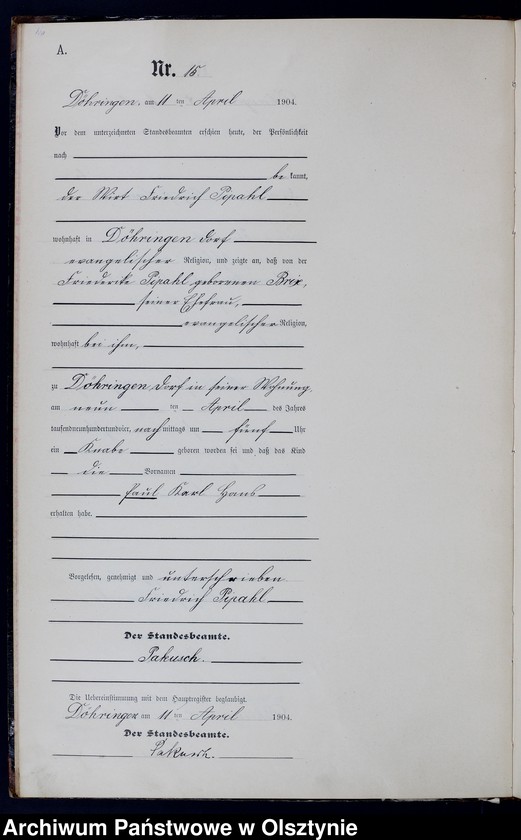 A.
Nr. 15.
Döhringen, am 11 ten April 1904.
Vor dem unterzeichneten Standesbeamten erschien heute, der Persönlichkeit
nach
be kannt,
der Wirt Friedrich Pepahl
wohnhaft in Döhringen Dorf
evangelischer Religion, und zeigte an, daß von der
Friedericke Pepahl geborenen Brix,
seiner Ehefrau,
evangelischer Religion,
wohnhaft bei ihm,
zu Döhringen Dorf in seiner Wohnung,
am neun ten April des Jahres
tausendneunhundertundvier, nach mittags um fünf Uhr
ein Knabe geboren worden sei und daß das Kind
die Vornamen
Paul Karl Hans
erhalten habe.
Vorgelesen, genehmigt und unterschrieben
Friedrich Pepahl
Der Standesbeamte.
Pakusch.
Die Uebereinstimmung mit dem Hauptregister beglaubigt.
Döhringen am 11 ten April 1904.
Der Standesbeamte.
Pakusch.
Archiwum Państwowe w Olsztynie